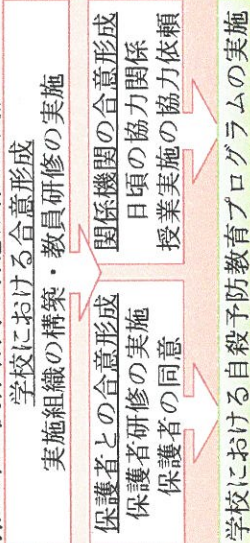 学校における合意形成
実施組織の構築・教員研修の実施
保護者との合意形成
保護者研修の実施
保護者の同意
関係機関の合意形成
日頃の協力関係
授業実施の協力依頼
学校における自殺予防教育プログラムの実施